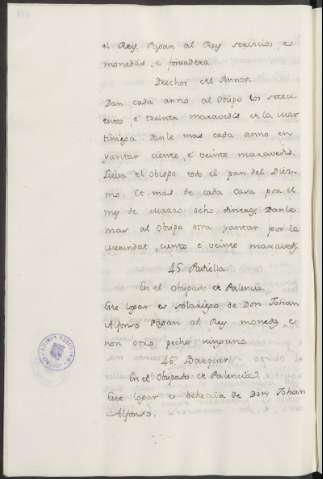 el Rey. Pagan al Rey servicios e
monedas, e fonsadera.
Derechos del Sennor.
Dan cada anno al Obispo los
e treinta maravedis en la mar-
tiniega. Danle mas cada anno en
yantar ciento, e veinte maravedis.
Lieva el Obispo todo el pan del Diez-
mo. Et mas de cada casa por el
mes de marzo ocho dineros. Danle
mas al Obispo otra yantar por la
ciento e veinte maravedis.
45
En el Obispado de Palencia.
Este logar es solariego de Don Johan
Alfonso. Pagan al Rey moneda, e
non otro pecho ninguno.
46.
En el Obispado de Palencia.
Este logar es behetria de Don Johan
Alfonso.